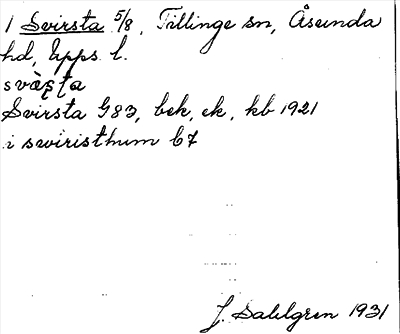 1 Svirsta 5/8, Tillinge sn, Åsunda
hd, Upps. l.
Svirsta G83, bek, ek, kb 1921
i swiristhum b7
J. Sahlgren 1931